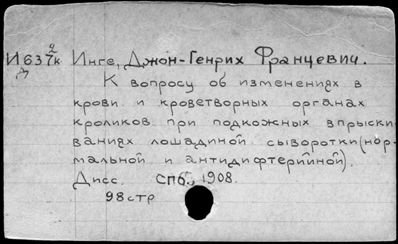 И637к Инге, Джон-Генрих Францевич.
2
д
К вопросу об изменениях в
крови и кроветворных органах
кроликов при подкожных впрыски-
ваниях лошадиной сыворотки (нор-
мальной и антидифтерийной).
Дисс. СПб., 1908.
98 стр